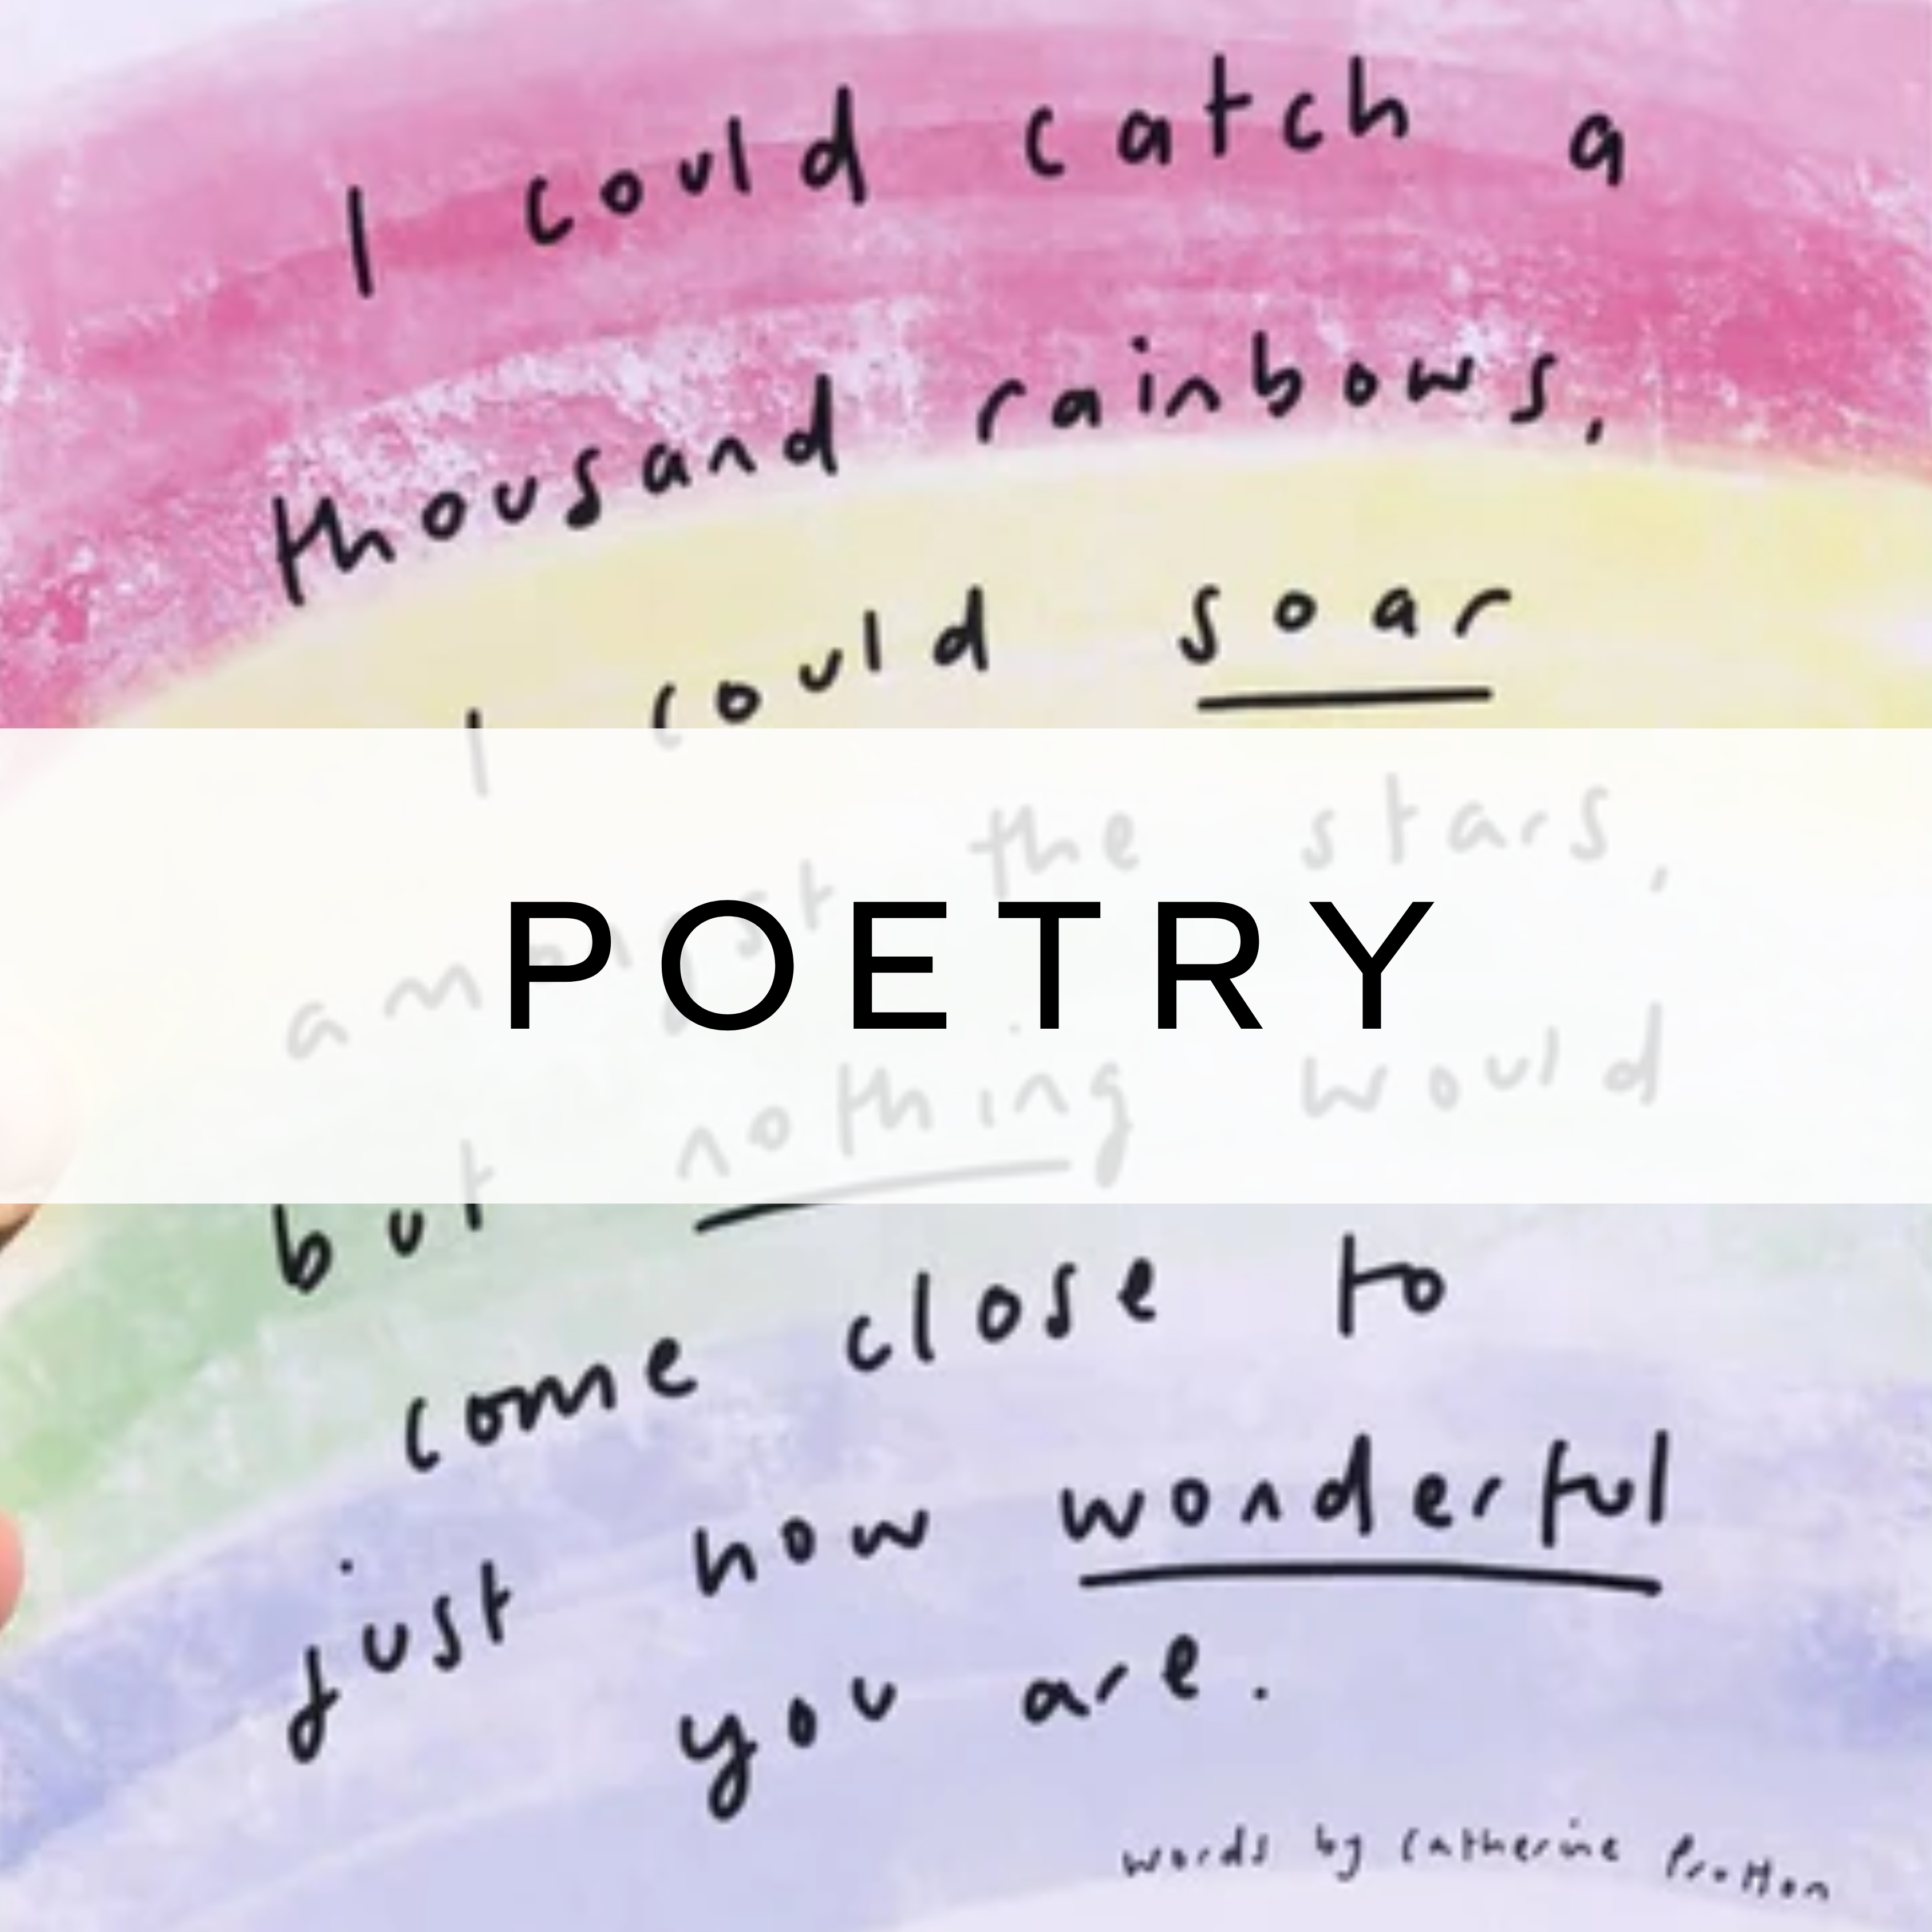 I could catch a
thousand rainbows,
I could soar
amongst the stars,
POETRY
but nothing would
come close to
just how wonderful
you are.
words by Catherine Prutton